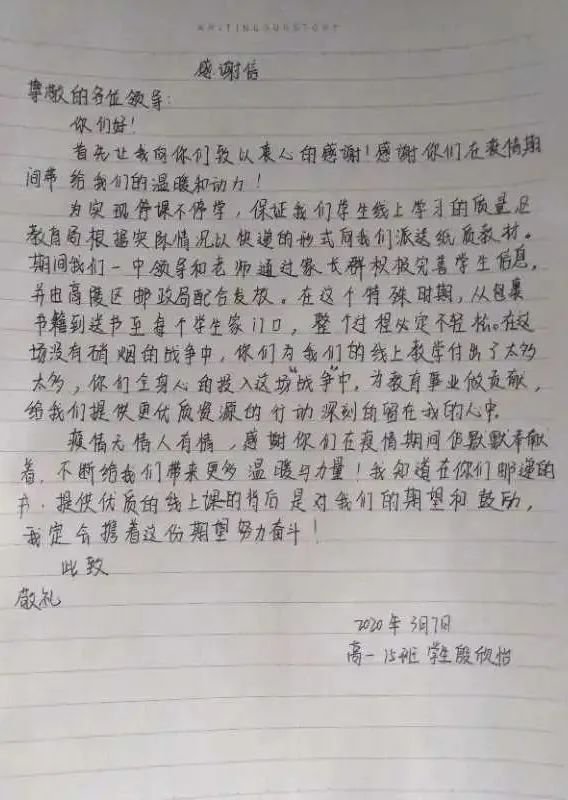 WRITING OUR STORY
感谢信
尊敬的各位领导:
你们好!
首先让我向你们致以衷心的感谢!感谢你们在疫情期
间带给我们的温暖和动力!
为实现停课不停学,保证我们学生线上学习的质量,区
教育局根据实际情况以快递的形式向我们派送纸质教材。
期间我们一中领导和老师通过家长群积极完善学生信息,
并由高陵区邮政局配合发放。在这个特殊时期,从包裹
书籍到送书至每个学生家门口,整个过程必定不轻松。在这
场没有硝烟的战争中,你们为我们的线上教学付出了太多
太多,你们全身心的投入这场"战争"中,为教育事业做贡献,
给我们提供更优质资源的行动深刻的留在我的心中。
疫情无情人有情,感谢你们在疫情期间但默默奉献
着,不断给我们带来更多温暖与力量!我知道在你们邮递的
书、提供优质的线上课的背后是对我们的期望和鼓励,
我定会携着这份期望努力奋斗!
此致
敬礼
2020年3月7日
高一15班 学生殷欣怡